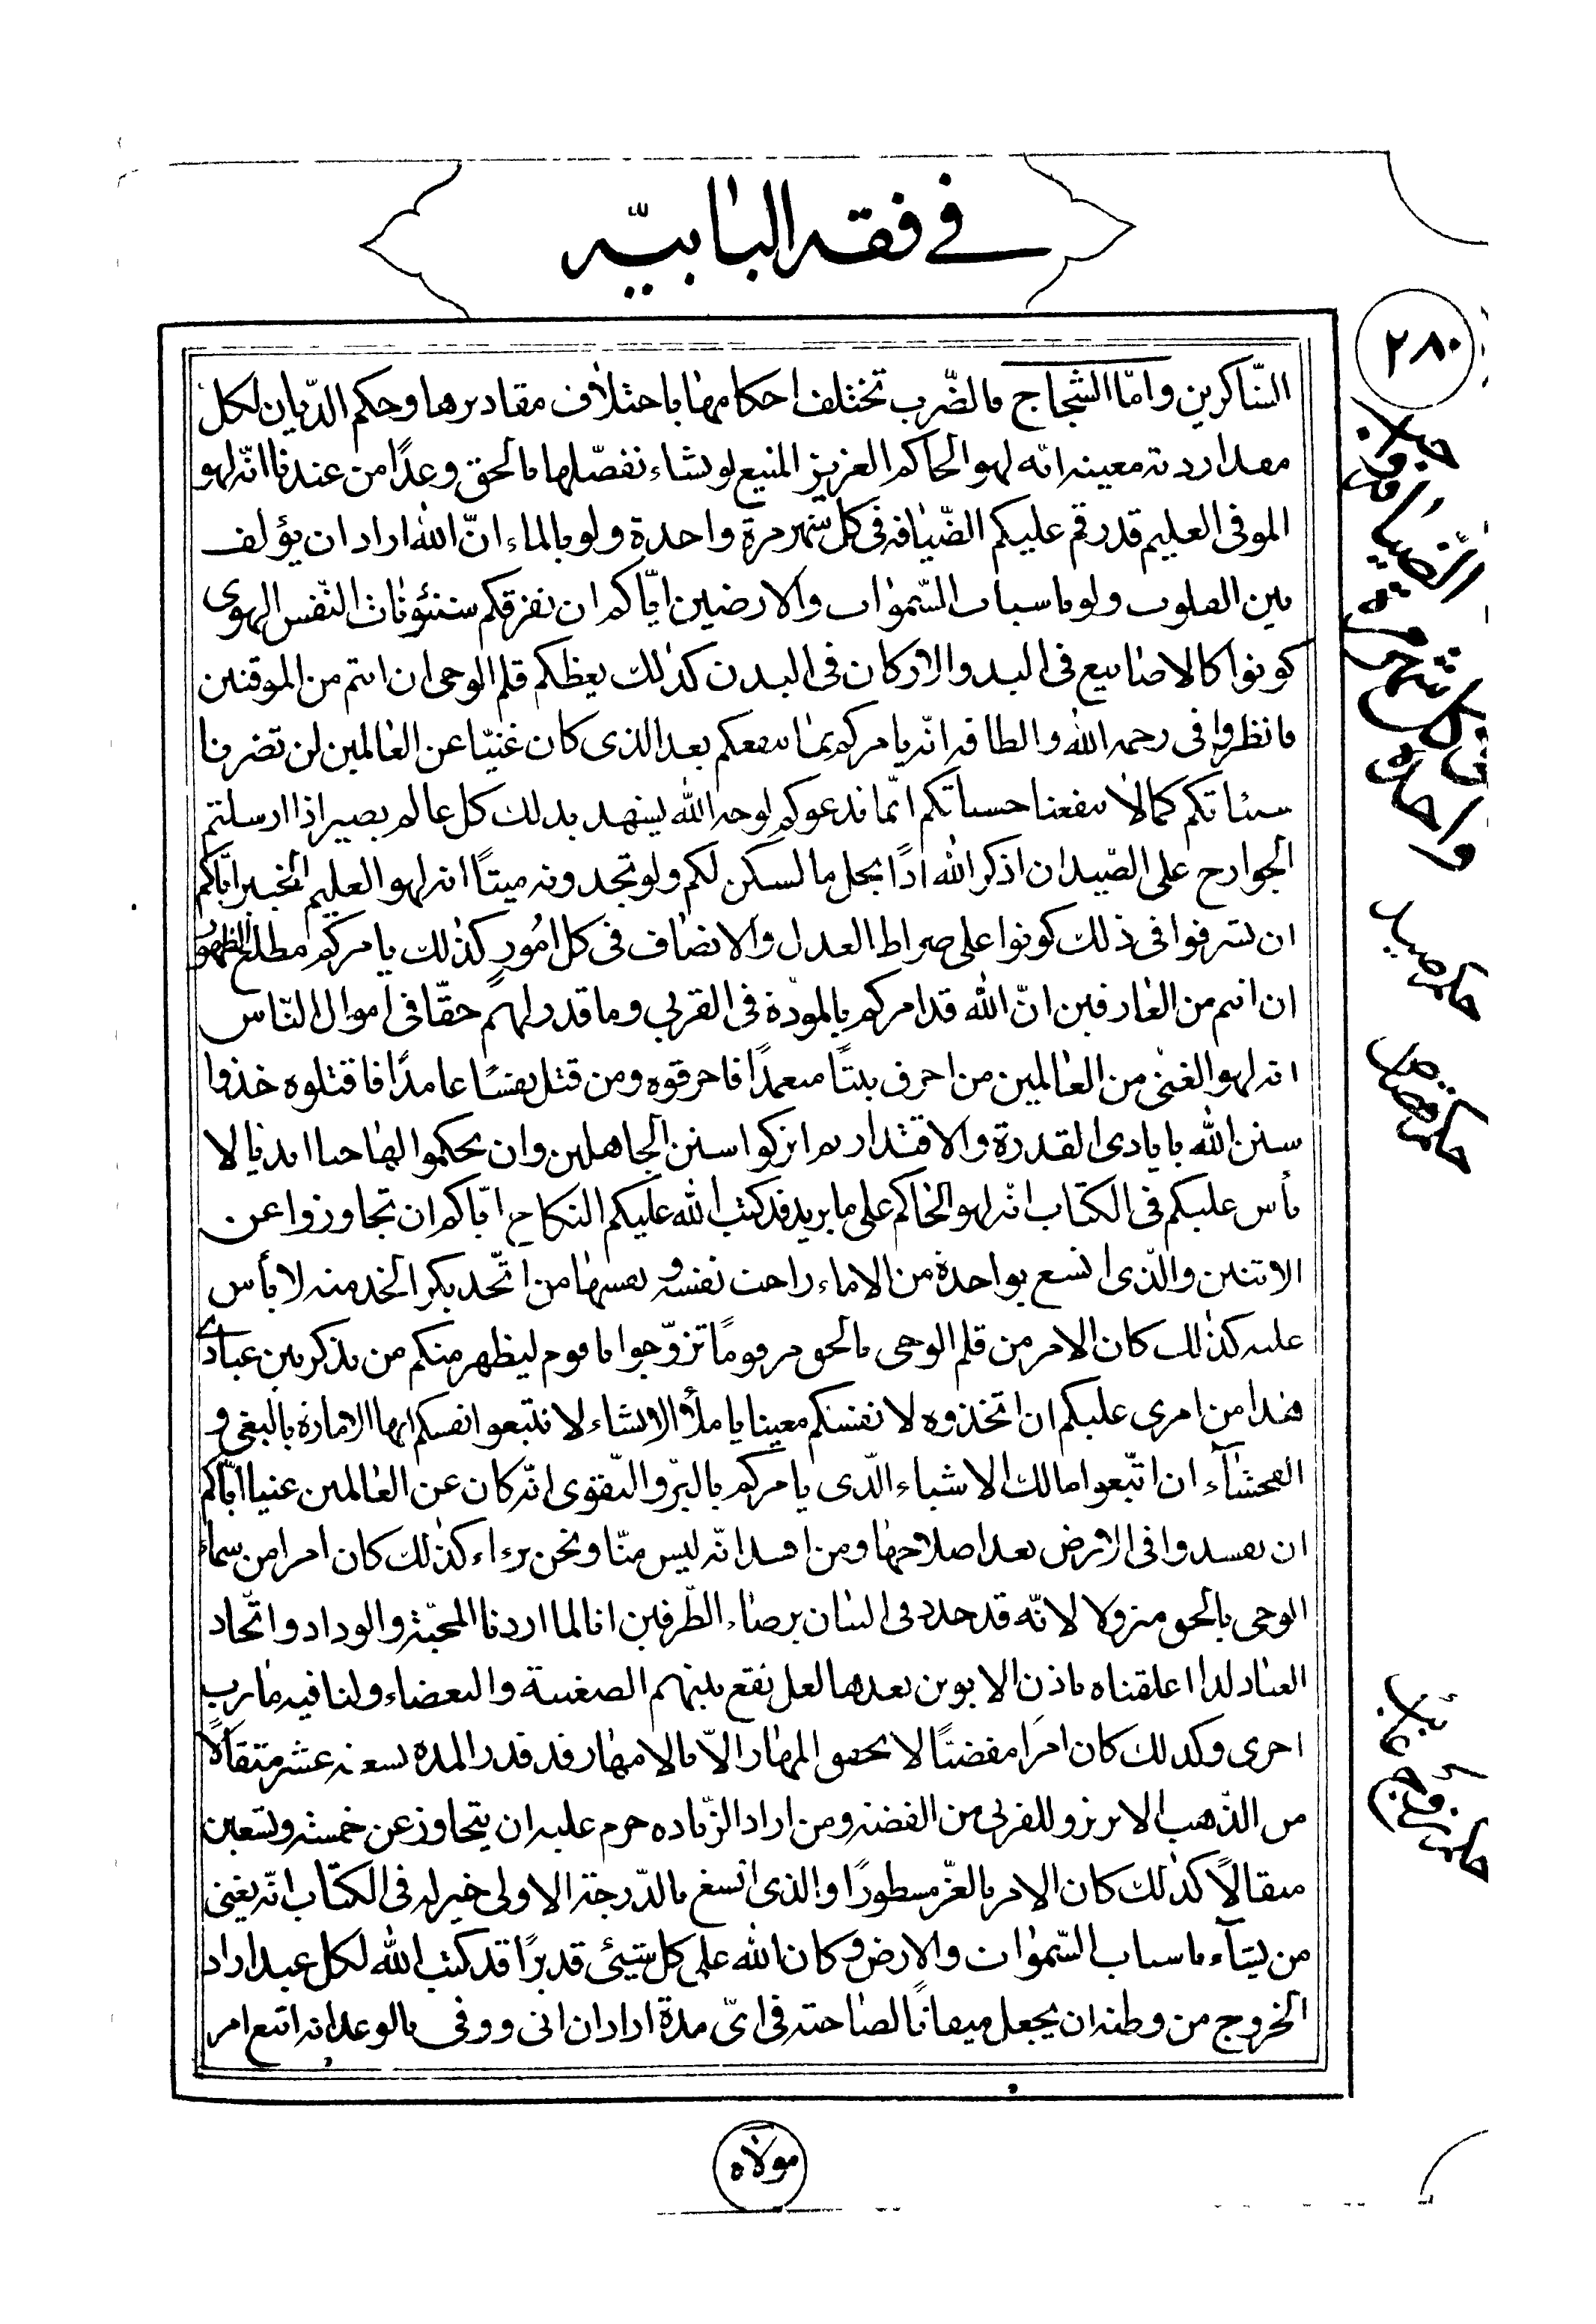 في فقه البابيّه
٢٨٠
الشّاكرين وامّا الشجاج والضّرب تختلف احكامها باختلاف مقاديرها وحكم الدّيان لكل
مقدار دية معينة انّه لهو الحاكم العزيز المنيع لو نشاء نفصّلها بالحق وعدًا من عندنا انّه لهو
الموفى العليم قد رقم عليكم الضّيافه فى كل شهر مرة واحدة ولو بالماء انّ الله اراد ان يؤلف
بين القلوب ولو باسباب السّموات والارضين ايّاكم ان تفرقكم شئونات النّفس الهوى
كونوا كالاصابيع فى اليد والاركان فى البدن كذلك يعظكم قلم الوحى ان انتم من الموقنين
فانظروا فى رحمة الله والطافه انّه يامركم بما ينفعكم بعد الذى كان غنيّا عن العالمين لن تضرنا
سيئاتكم كما لا تنفعنا حسناتكم انّما ندعوكم لوجه الله يشهد بذلك كل عالم بصير اذا ارسلتم
الجوارح على الصّيد ان اذكر الله اذًا يحل ما امسكن لكم ولو تجدونه ميتًا انه لهو العليم الخبير ايّاكم
ان تسرفوا فى ذلك كونوا على صراط العدل والانصاف فى كل امُور كذلك يامركم مطلع الظهور
ان انتم من العارفين انّ الله قد امركم بالمودّة فى القربى وما قدر لهم حقّا فى اموال النّاس
انه لهو الغنى من العالمين من احرق بيتًا متعمدًا فاحرقوه ومن قتل نفسًا عامدًا فاقتلوه خذوا
سنن الله بايادى القدرة والاقتدار ثم اتركوا سنن الجاهلين وان تحكموا لهما حبسا ابديا لا
بأس عليكم فى الكتاب انّه لهو الحاكم على ما يريد قد كتب الله عليكم النكاح ايّاكم ان تجاوزوا عن
الاثنتين والّذى اقتنع بواحدة من الاماء راحت نفسه و نفسها من اتّخذ بكرا لخدمته لا بأس
عليه كذلك كان الامر من قلم الوحى بالحق مرقومًا تزوّجوا يا قوم ليظهر منكم من يذكر بين عبادى
هذا من امرى عليكم ان اتخذوه لانفسكم معينا يا ملأ الانشاء لا تتبعوا انفسكم انها الامارة بالبغى و
الفحشآء ان اتّبعوا مالك الاشياء الّذى يامركم بالبرّ والتّقوى انّه كان عن العالمين غنيا ايّاكم
ان تفسدوا فى الارض بعد اصلاحها ومن افسد انّه ليس منّا ونحن برءاء كذلك كان امرا من سماء
الوحى بالحق منزولا لانّه قد حدد فى البيان برضاء الطّرفين انا لما اردنا المحبّة والوداد واتّحاد
العباد لذا علقناه باذن الابوين بعدهما لعل تقع بينهم الضغينة والبغضاء ولنا فيه مارب
اخرى وكذلك كان امرًا مقضيًا لا يحقق المهار الاّ بالامهار قد قدر للمدن تسعة عشر مثقالًا
من الذّهب الابريز وللقرى من الفضة ومن اراد الزّياده حرم عليه ان يتجاوز عن خمسة وتسعين
مثقالًا كذلك كان الامر بالعزّ مسطورًا والذى اقتنع بالدّرجة الاولى خير له فى الكتاب انّه يغنى
من يشآء باسباب السّموات والارض و كان الله على كل شيئ قديرًا قد كتب الله لكل عبد اراد
الخروج من وطنه ان يجعل ميقاتًا لصاحبته فى اىّ مدة اراد ان اتى ووفى بالوعد انه اتبع امر
مولاه
الضّيافة
فى كل شهر مرة
واحدة
حكم صيد
حكم قصاص